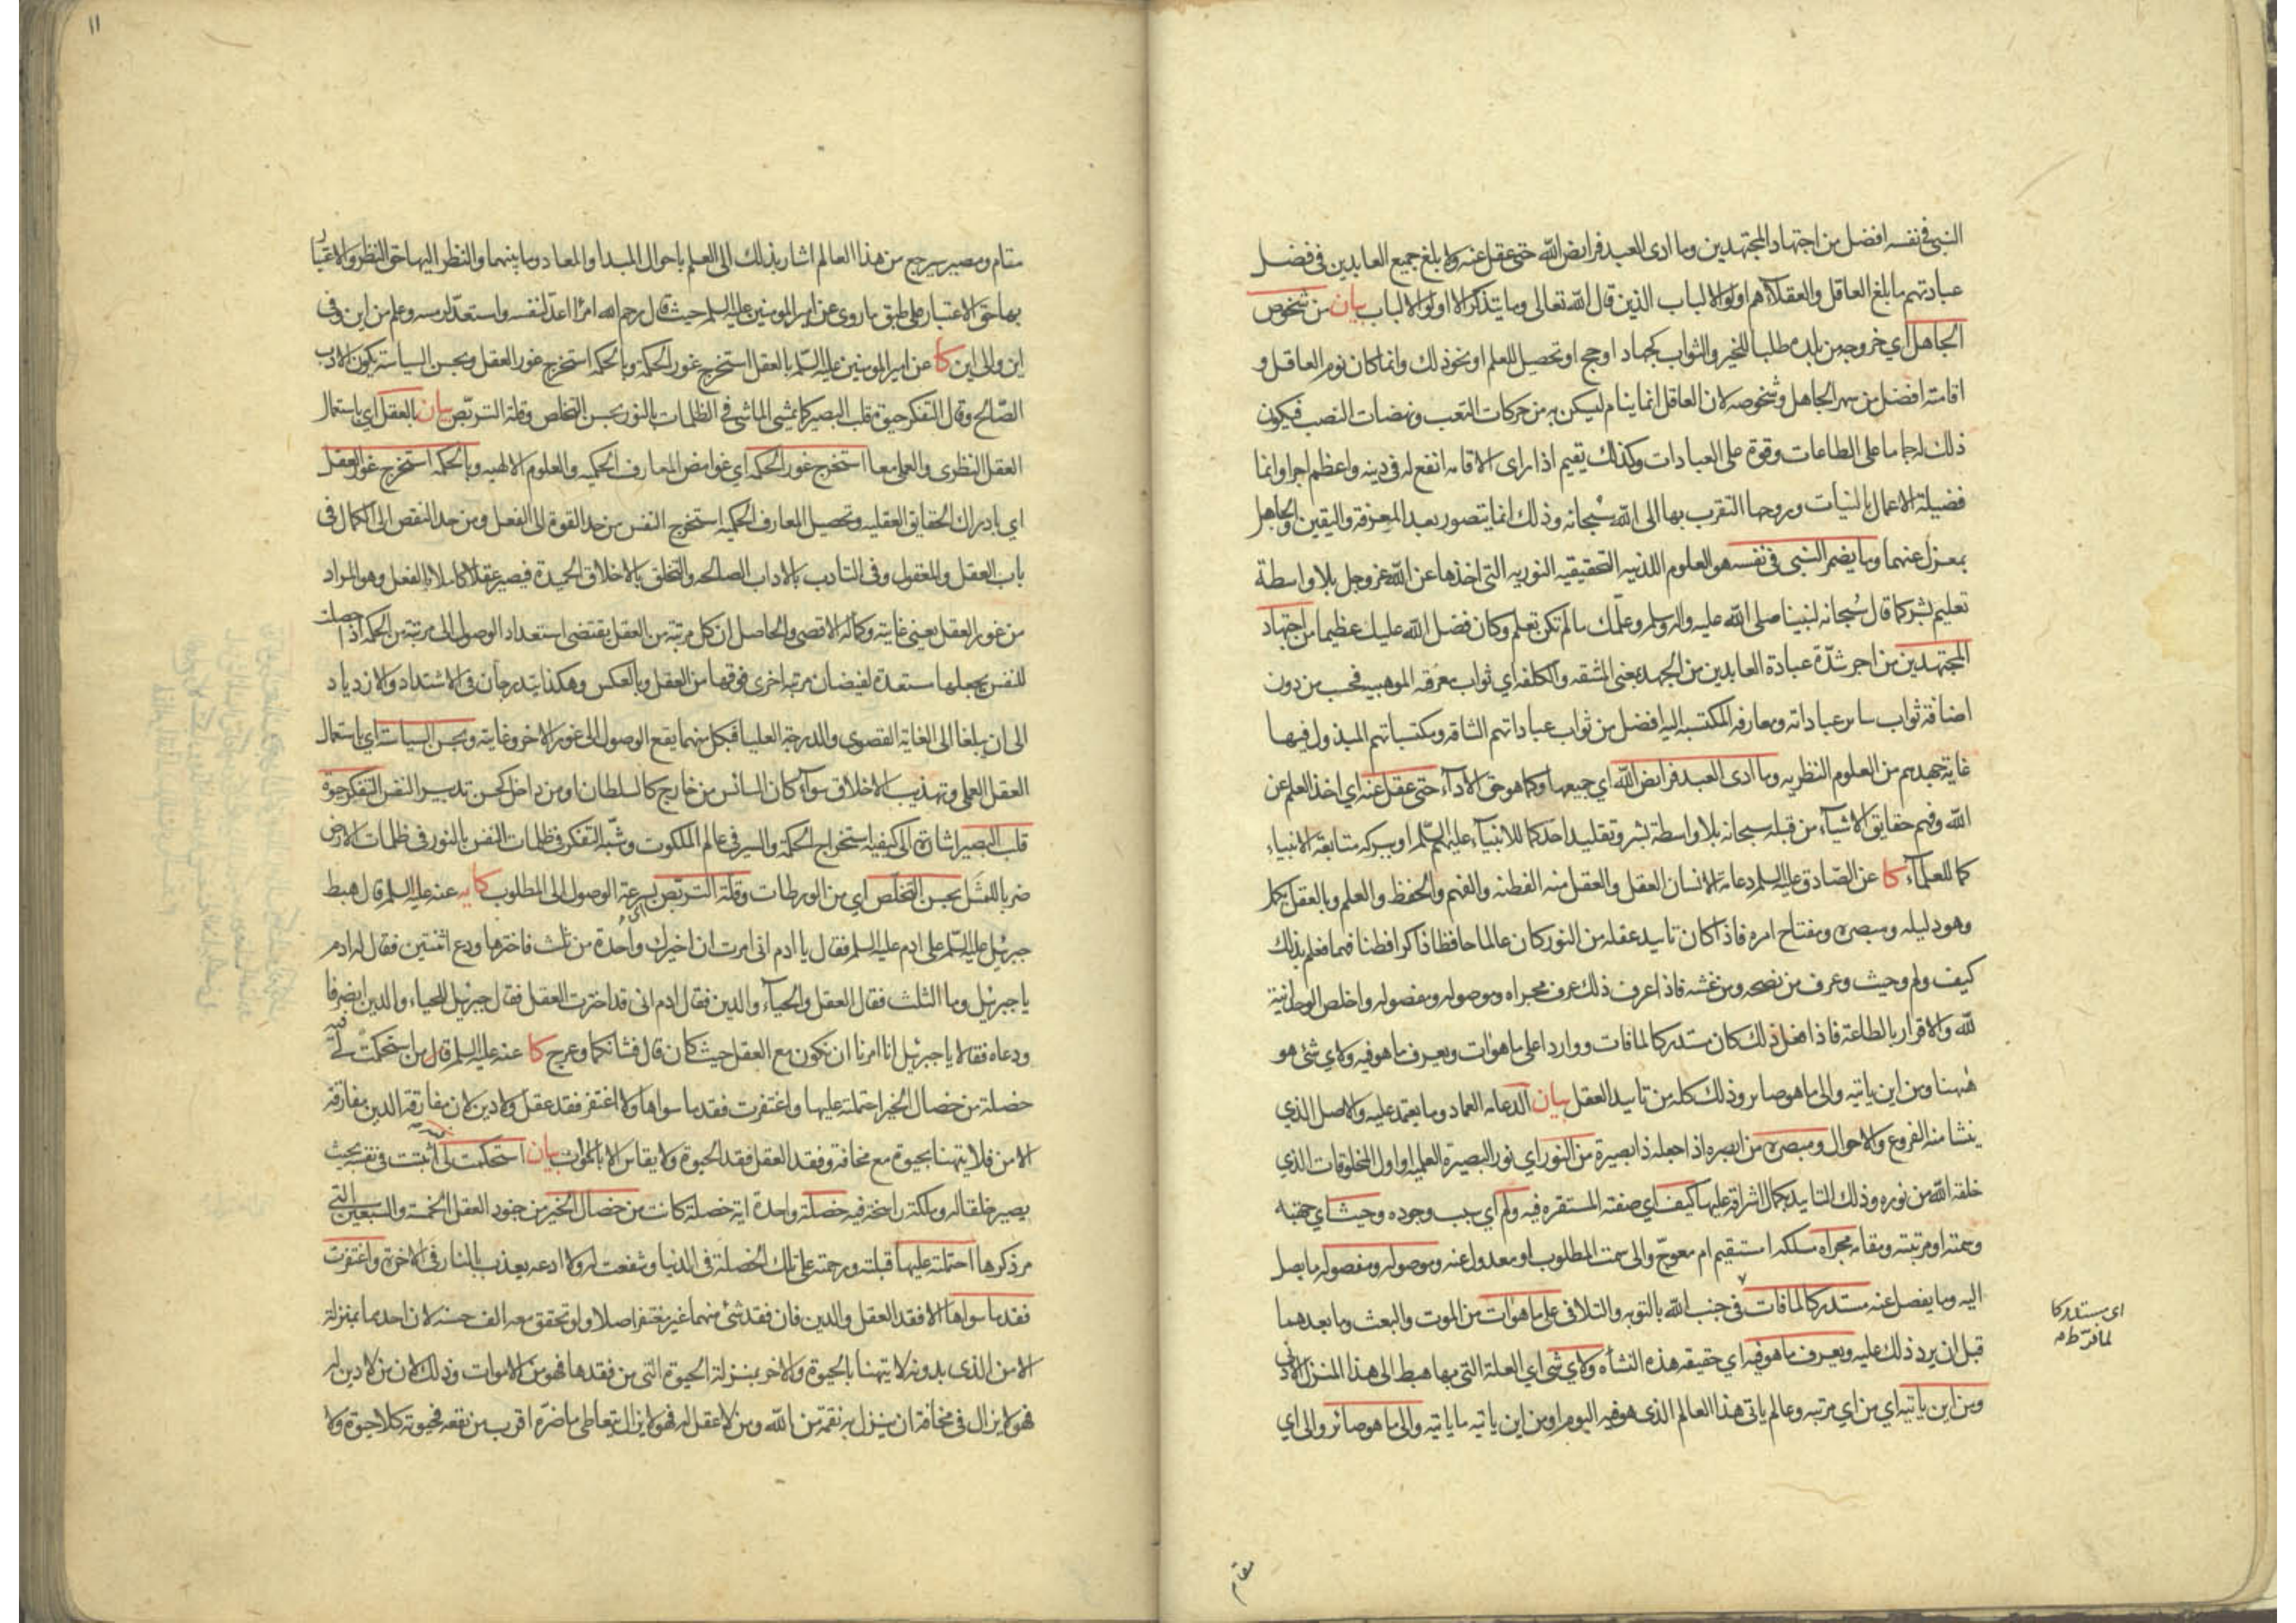 النبي في نفسه افضل من اجتهاد المجتهدين وما ادى العبد فرايض الله حتى عقل عنه ولا بلغ جميع العابدين في فضل
عبادتهم ما بلغ العاقل والعقلاء هم اولوا الالباب الذين قال الله تعالى وما يتذكر الا اولوا الالباب بيان من شخوص
الجاهل اي خروجه من بلده طلبا للخير والثواب كجهاد او حج او تحصيل للعلم او نحو ذلك وانما كان نوم العاقل و
اقامته افضل من سهر الجاهل وشخوصه لان العاقل انما ينام ليسكن به من حركات التعب ونهضات النصب فيكون
ذلك له جماما على الطاعات وقوة على العبادات وكذلك يقيم اذا راى الاقامة انفع له في دينه واعظم اجرا وانما
فضيلة الاعمال بالنيات وروحها التقرب بها الى الله سبحانه وذلك انما يتصور بعد المعرفة واليقين والجاهل
بمعزل عنهما وما يضمر النبي في نفسه هو العلوم اللدنيه التحقيقيه النوريه التي اخذها عن الله عز وجل بلا واسطة
تعليم بشر كما قال سبحانه لنبينا صلى الله عليه واله وسلم وعلمك مالم تكن تعلم وكان فضل الله عليك عظيما من اجتهاد
المجتهدين من اجر شدّة عبادة العابدين من الجهد بمعنى المشقه والكلفه اي ثواب معرفته الموهبيه فحسب من دون
اضافة ثواب ساير عباداته ومعارفه المكتسبه اليه افضل من ثواب عباداتهم الشاقه ومكتسباتهم المبذول فيها
غاية جهدهم من العلوم النظريه وما ادى العبد فرايض الله اي جميعها وكما هو حق الاداء حتى عقل عنه اي اخذ العلم عن
الله وفهم حقايق الاشياء من قبله سبحانه بلا واسطة بشر وتقليد احد كما للانبياء عليهم السلم او ببركه متابعة الانبياء
كما للعلماء كا عن الصادق عليه السلم دعامة الانسان العقل والعقل منه الفطنه والفهم والحفظ والعلم وبالعقل يكمل
وهو دليله ومبصره ومفتاح امره فاذا كان تاييد عقله من النور كان عالما حافظا ذاكرا فطنا فهما فعلم بذلك
كيف ولم وحيث وعرف من نصحه ومن غشه فاذا عرف ذلك عرف مجراه وموصوله ومفصوله واخلص الوحدانية
لله والاقرار بالطاعة فاذا فعل ذلك كان مستدركا لما فات وواردا على ما هو ات ويعرف ما هو فيه ولاي شئ هو
ههنا ومن اين ياتيه والى ما هو صاير وذلك كله من تاييد العقل بيان الدعامه العماد وما يعتمد عليه والاصل الذي
ينشا منه الفروع والاحوال ومبصره من ابصره اذا جعله ذا بصيرة من النور اي نور البصيرة العلميه او اول المخلوقات الذي
خلقه الله من نوره وذلك التاييد بكمال اشراقه عليها كيف اي صفته المستقره فيه ولم اي سبب وجوده وحيث اي جهته
وسمته او مرتبته ومقامه مجراه مسلكه استقيم ام معوج والى سمت المطلوب او معدولا عنه وموصوله ومفصوله ما يصل
اليه وما يفصل عنه مستدركا لما فات في جنب الله بالتوبه والتلافي على ما هو ات من الموت والبعث وما بعدهما
قبل ان يرد ذلك عليه ويعرف ما هو فيه اي حقيقه هذه النشاه ولاي شئ اي العلة التي بها هبط الى هذا المنزل الادنى
ومن اين ياتيه اي من اي مرتبه وعالم ياتي هذا العالم الذي هو فيه اليوم او من اين ياتيه ما ياتيه والى ما هو صائر والى اي
اى مستدركا
لما فرّط منه
مقام
١١
مقام ومصير سيرجع من هذا العالم اشار بذلك الى العلم باحوال المبدا والمعاد وما بينهما والنظر اليها حق النظر والاعتبار
بها حق الاعتبار على طبق ما روى عن امير المومنين عليه السلم حيث قال رحم الله امرأ اعدّ لنفسه واستعدّ لرمسه وعلم من اين وفي
اين والى اين كا عن امير المومنين عليه السلم بالعقل استخرج غور الحكمة وبالحكمة استخرج غور العقل وبحسن السياسة يكون الادب
الصالح وقال التفكر حيوة قلب البصير كما يمشي الماشي في الظلمات بالنور بحسن التخلص وقلة التربّص بيان بالعقل اي باستعمال
العقل النظري والعملي معا استخرج غور الحكمه اي غوامض المعارف الحكميه والعلوم الالهيه وبالحكمه استخرج غور العقل
اي بادراك الحقايق العقليه وتحصيل المعارف الحكميه استخرج النفس من حد القوة الى الفعل ومن حد النقص الى الكمال في
باب العقل والمعقول وفي التادب بالاداب الصالحه والتخلق بالاخلاق الحميدة فيصير عقلا كاملا بالفعل وهو المراد
من غور العقل يعني غايته وكماله الاقصى والحاصل ان كل مرتبة من العقل يقتضى استعداد الوصول الى مرتبة من الحكمه اذا حصلت
للنفس يجعلها مستعدة لفيضان مرتبه اخرى فوقها من العقل وبالعكس وهكذا يتدرجان في الاشتداد والازدياد
الى ان يبلغا الى الغاية القصوى والدرجة العليا فبكل منهما يقع الوصول الى غور الاخر وغايته وبحسن السياسة اي باستعمال
العقل العملي وتهذيب الاخلاق سواء كان السائس من خارج كالسلطان او من داخل كحسن تدبير النفس التفكر حيوة
قلب البصير اشارة الى كيفية استخراج الحكمة والسير في عالم الملكوت وشبّه التفكر في ظلمات النفس بالنور في ظلمات الارض
ضربا للمثل بحسن التخلّص اي من الورطات وقلة التربّص بسرعة الوصول الى المطلوب كا يه عنه عليه السلم قال هبط
جبرئيل عليه السلم على ادم عليه السلم فقال يا ادم اني امرت ان اخيرك واحدة من ثلث فاخترها ودع اثنتين فقال له ادم
يا جبرئيل وما الثلث فقال العقل والحياء والدين فقال ادم اني قد اخترت العقل فقال جبرئيل للحياء والدين انصرفا
ودعاه فقالا يا جبرئيل انا امرنا ان نكون مع العقل حيث كان قال فشانكما وعرج كا عنه عليه السلم قال من استحكمت لي فيه
خصلة من خصال الخير احتملته عليها واغتفرت فقد ما سواها ولا اغتفر فقد عقل ولا دين لان مفارقة الدين مفارقة
الامن فلا يتهنا بحيوة مع مخافة وفقد العقل فقد الحيوة ولا يقاس الا بالاموات بيان استحكمت لي اثبتت في نفسه بحيث
يصير خلقا له وملكة راسخة فيه خصلة واحدة اية خصلة كانت من خصال الخير من جنود العقل الخمسة والسبعين التي
مر ذكرها احتملته عليها قبلته ورحمته على تلك الخصلة في الدنيا وشفعت له ولا ادعه يعذب بالنار في الاخرة واغتفرت
فقد ما سواها الا فقد العقل والدين فان فقد شئ منهما غير مغتفر اصلا ولو تحقق معه الف حسنه لان احدهما بمنزلة
الامن الذي بدونه لا يتهنا بالحيوة والاخر بمنزلة الحيوة التي من فقدها فهو من الاموات وذلك لان من لا دين له
فهو لا يزال في مخافة ان ينزل به نقمة من الله ومن لا عقل له فهو لا يزال يتعاطى ما ضرّه اقرب من نفعه فحيوته كلا حيوة ولا